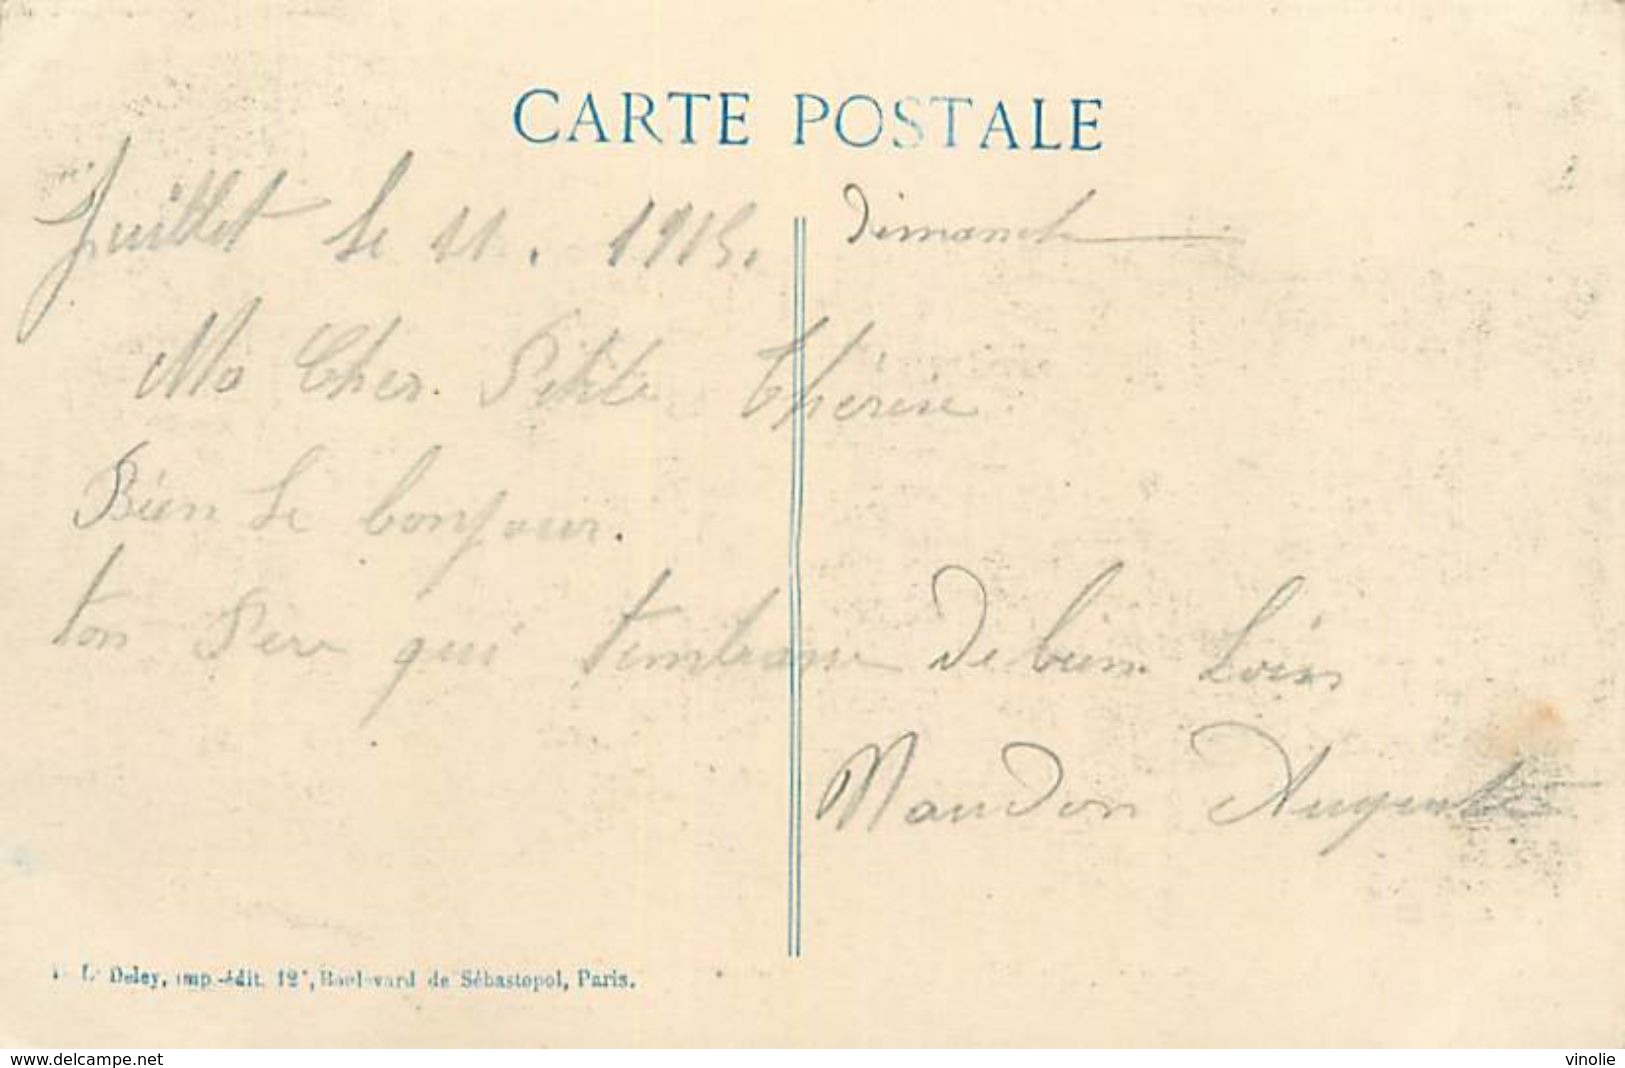 CARTE POSTALE
Juillet le 11. 1915. Dimanche
Ma Cher. Petite Thérèse
Bien le bonjour.
ton Père qui t'embrasse de bien Loin
Naudon Auguste
L. Deley, imp.-édit. Boulevard de Sébastopol, Paris.
www.delcampe.net
vinolie